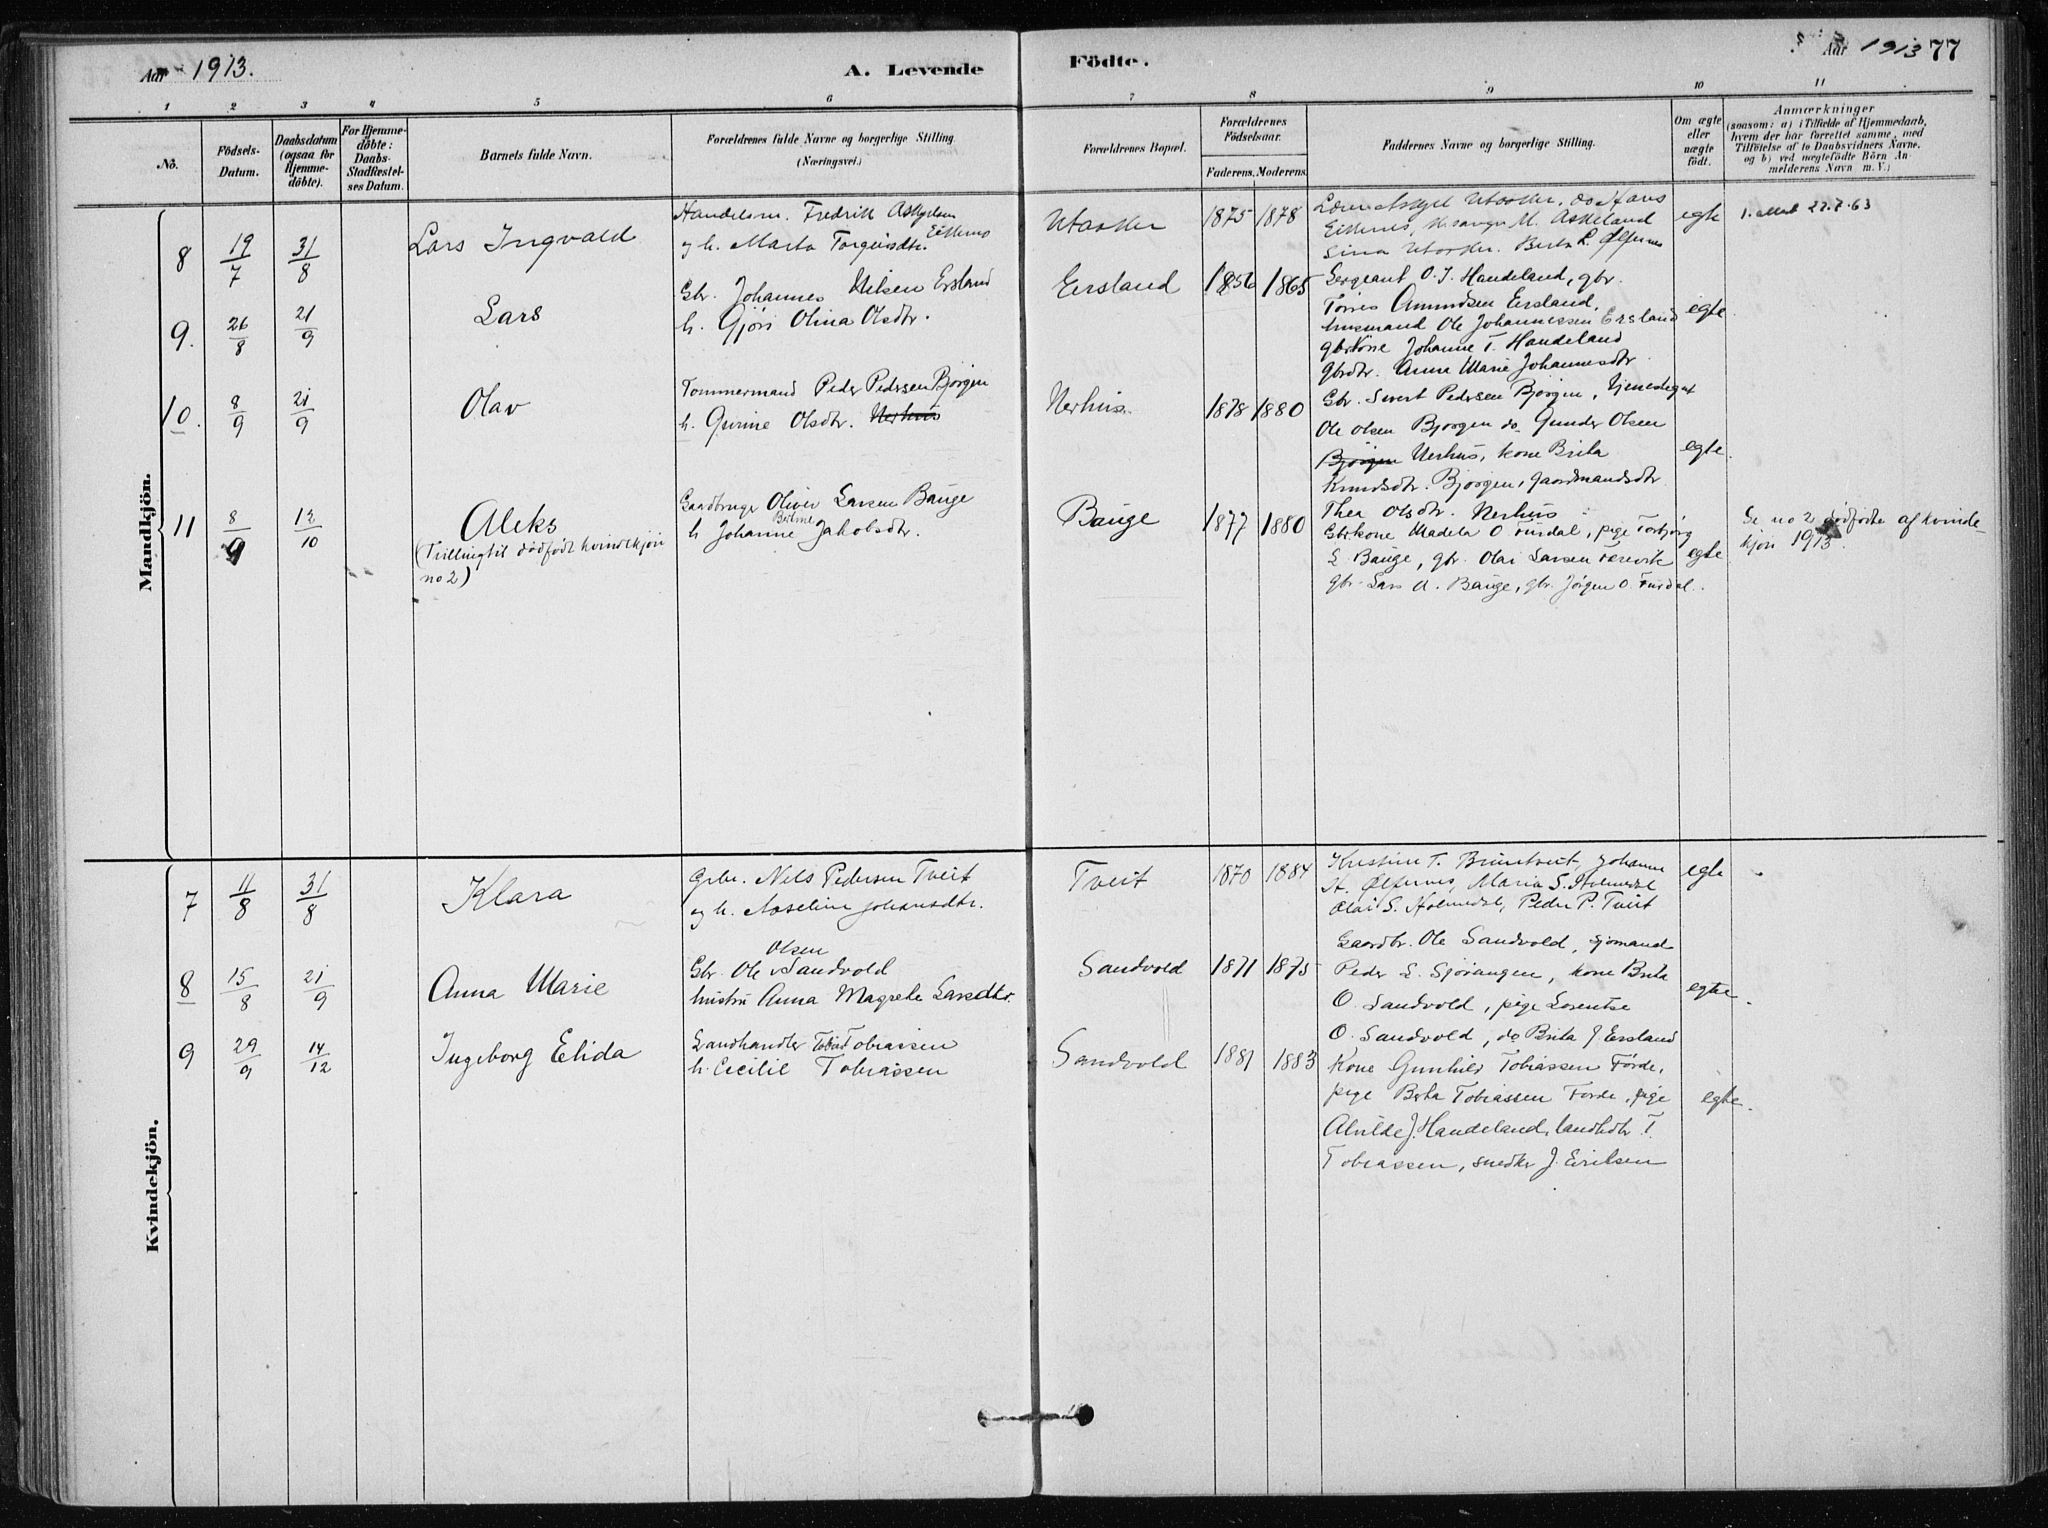 Aar 1913.
A. Levende
Födte.
Aar 1913 77
1 2 3 4 5 6 7 8 9 10 11
Nō.
Födsels-Datum.
Daabsdatum (ogsaa for Hjemme-döbte).
For Hjemme-döbte: Daabs-Stadfæstel-ses Datum.
Barnets fulde Navn.
Forældrenes fulde Navne og borgerlige Stilling (Næringsvei.)
Forældrenes Bopæl.
Forældrenes Födselsaar.
Faderens. Moderens.
Faddernes Navne og borgerlige Stilling.
Om ægte eller uægte födt.
Anmærkninger
(saasom: a) i Tilfælde af Hjemmedaab,
hvem der har forrettet samme, med
Tilföielse af to Daabsvidners Navne.
og b) ved uægtefödte Börn An-
melderens Navn m. V.)
Mandkjön.
8 19/7 31/8 Lars Ingvald
Handelsm. Fredrik Askjelsen
Eitternes
og h. Marta Torgeirsdtr.
Utaaker 1875 1878
Askjel Utaaker, do Hans
Eitternes, M. Askeland
Sina Utaaker. Berta L. Ølfernes
egte
1. attest 22.7.63
9. 26/8 21/9 Lars
Gbr. Johannes Nilsen Ersland
h. Gjöri Olina Olsdtr.
Eersland 1856 1865
Sergeant O. J. Handeland, gbr.
Törris Amundsen Eersland,
husmand Ole Johannessen Ersland
gbrkone Johanne T. Handeland
gbrdtr. Anna Marie Johannesdtr
egte
10. 8/9 21/9 Olav
Tommermand Peder Pedersen Bjørgen
h. Gurine Olsdtr. Nerhus
Nerhus. 1878 1880
Gbr. Sivert Pedersen Bjørgen, tjenestegut
Ole Olsen Bjorgen do Gunder Olsen
Bjørgen Nerhus, kone Brita
Knudsdtr. Bjorgen, gaardmandsdtr
Thea Olsdtr. Nerhus
egte.
11 8/9 12/10 Aleks
(Trilling til dödfödt kvindekjön
no 2)
Gaardbruger Oliver Larsen Bauge
h Johanne Jakobsdtr.
Bauge 1877 1880
Gbrkone Madela O Furdal, pige Torbjörg
L Bauge, gbr. Olai Larsen
gbr. Lars A. Bauge, gbr. Jørgen O. Furdal.
egte
Se no 2 dödfödte af kvinde-
kjön 1913.
Kvindekjön.
7 11/8 31/8 Klara
Grbr. Nils Pedersen Tveit
og h. Aaseline Johansdtr.
Tveit 1870 1884
Kristine T. Johanne
H. Ølfernes, Maria S. Holmedal
Olai S. Holmedal, Peder P. Tveit
egte
8 15/8 21/9 Anna Marie
Olsen
Gbr. Ole Sandvold
hustru Anna Magrete Larsdtr.
Sandvold 1871 1875
Gaardbr. Ole Sandvold, sjomand
Peder L. Sjoangen, kone Brita
O. Sandvold, pige Lorentse
O. Sandvold, do Brita J Eersland
egte.
9 29/9 14/12 Ingeborg Elida
Landhandler Tobias Tobiassen
h. Cicilie Tobiassen
Sandvold 1881 1883
Kone Gunhild Tobiassen Förde,
pige Berta Tobiassen Forde, pige
Alvilde J. Handeland, landhdr T.
Tobiassen, snedker J. Eriksen
egte.